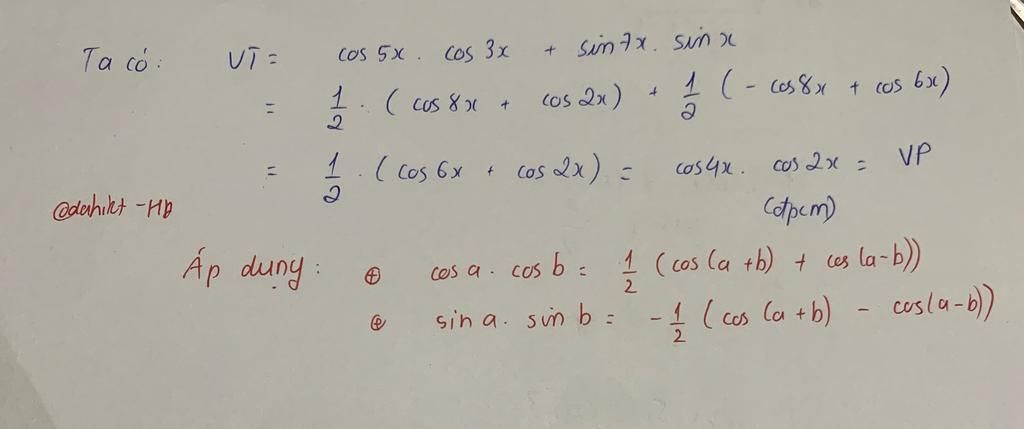 Ta có: VT = cos 5x . cos 3x + sin 7x . sin x
= 1/2 . ( cos 8x + cos 2x ) + 1/2 ( - cos 8x + cos 6x )
= 1/2 . ( cos 6x + cos 2x ) = cos 4x . cos 2x = VP
(đpcm)
@dahikt - HD
Áp dụng: ⊕ cos a . cos b = 1/2 ( cos (a + b) + cos (a - b))
⊕ sin a . sin b = - 1/2 ( cos (a + b) - cos (a - b))